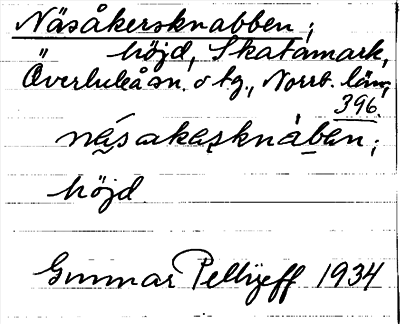 Näsåkersknabben;
" höjd, Skatamark,
Överluleå sn. o tg., Norrb. län;
396
näsakesknàben;
höjd.
Gunnar Pellijeff 1934